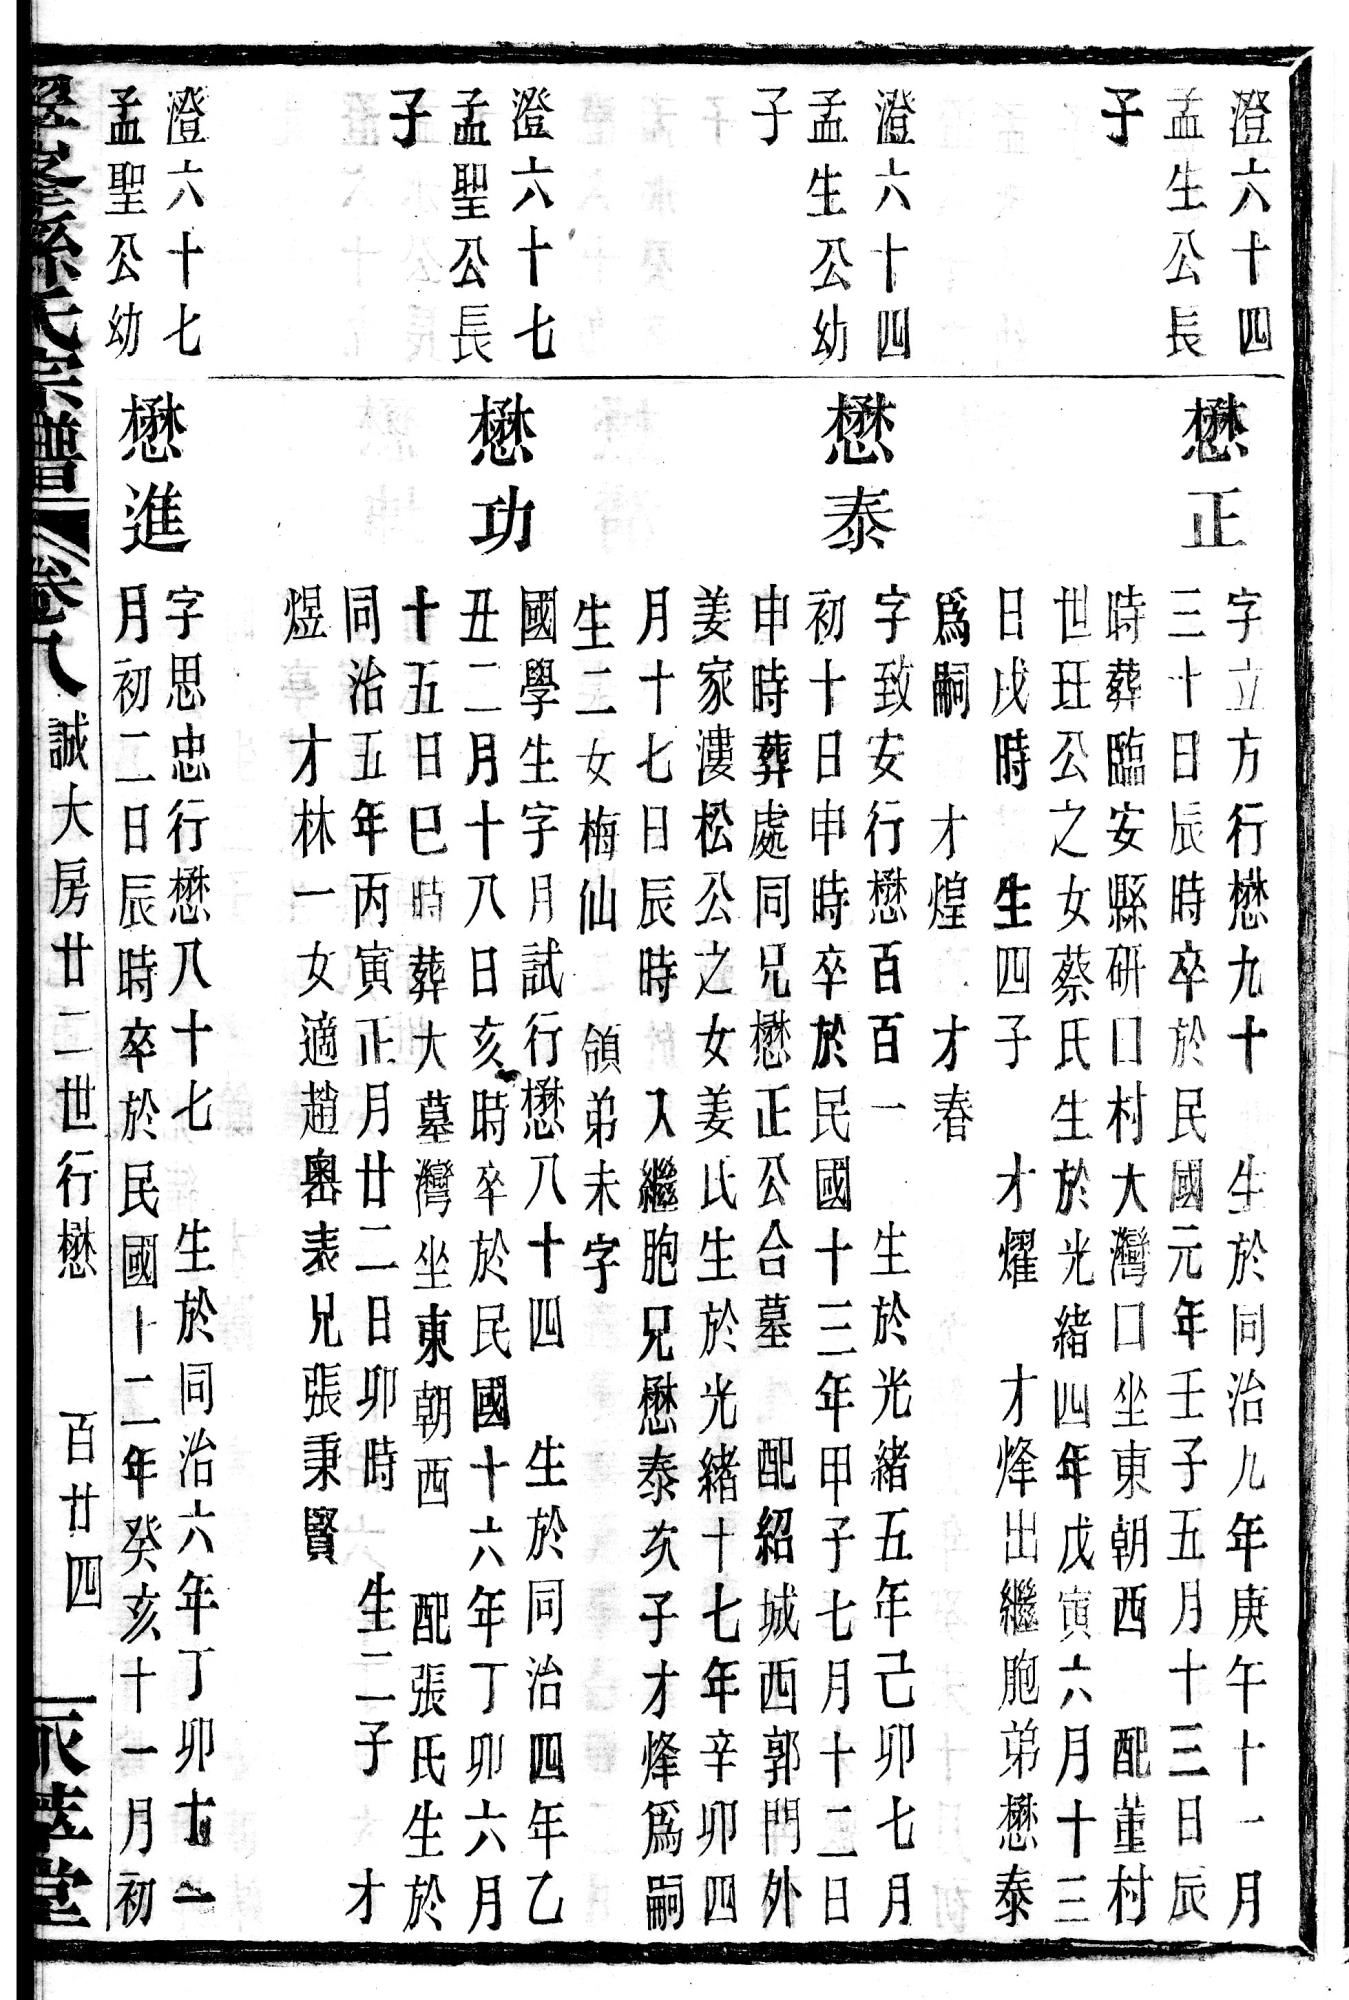 澄六十四
孟生公長
子
懋正
字立方行懋九十　生於同治九年庚午十一月
三十日辰時卒於民國元年壬子五月十三日辰
時葬臨安縣研口村大灣口坐東朝西　配董村
世玨公之女蔡氏生於光緒四年戊寅六月十三
日戌時　生四子　才燿　才烽出繼胞弟懋泰
爲嗣　才煌　才春
澄六十四
孟生公幼
子
懋泰
字致安行懋百百一　生於光緒五年己卯七月
初十日申時卒於民國十三年甲子七月十二日
申時葬處同兄懋正公合墓　配紹城西郭門外
姜家漊松公之女姜氏生於光緒十七年辛卯四
月十七日辰時　入繼胞兄懋泰次子才烽爲嗣
生二女梅仙　領弟未字
澄六十七
孟聖公長
子
懋功
國學生字月試行懋八十四　生於同治四年乙
丑二月十八日亥時卒於民國十六年丁卯六月
十五日巳時葬大墓灣坐東朝西　配張氏生於
同治五年丙寅正月廿二日卯時　生二子　才
煜　才林一女適趙岙表兄張秉賢
澄六十七
孟聖公幼
懋進
字思忠行懋八十七　生於同治六年丁卯十一
月初二日辰時卒於民國十二年癸亥十一月初
孫氏宗譜　卷八　誠大房廿二世行懋　百廿四　萃堂